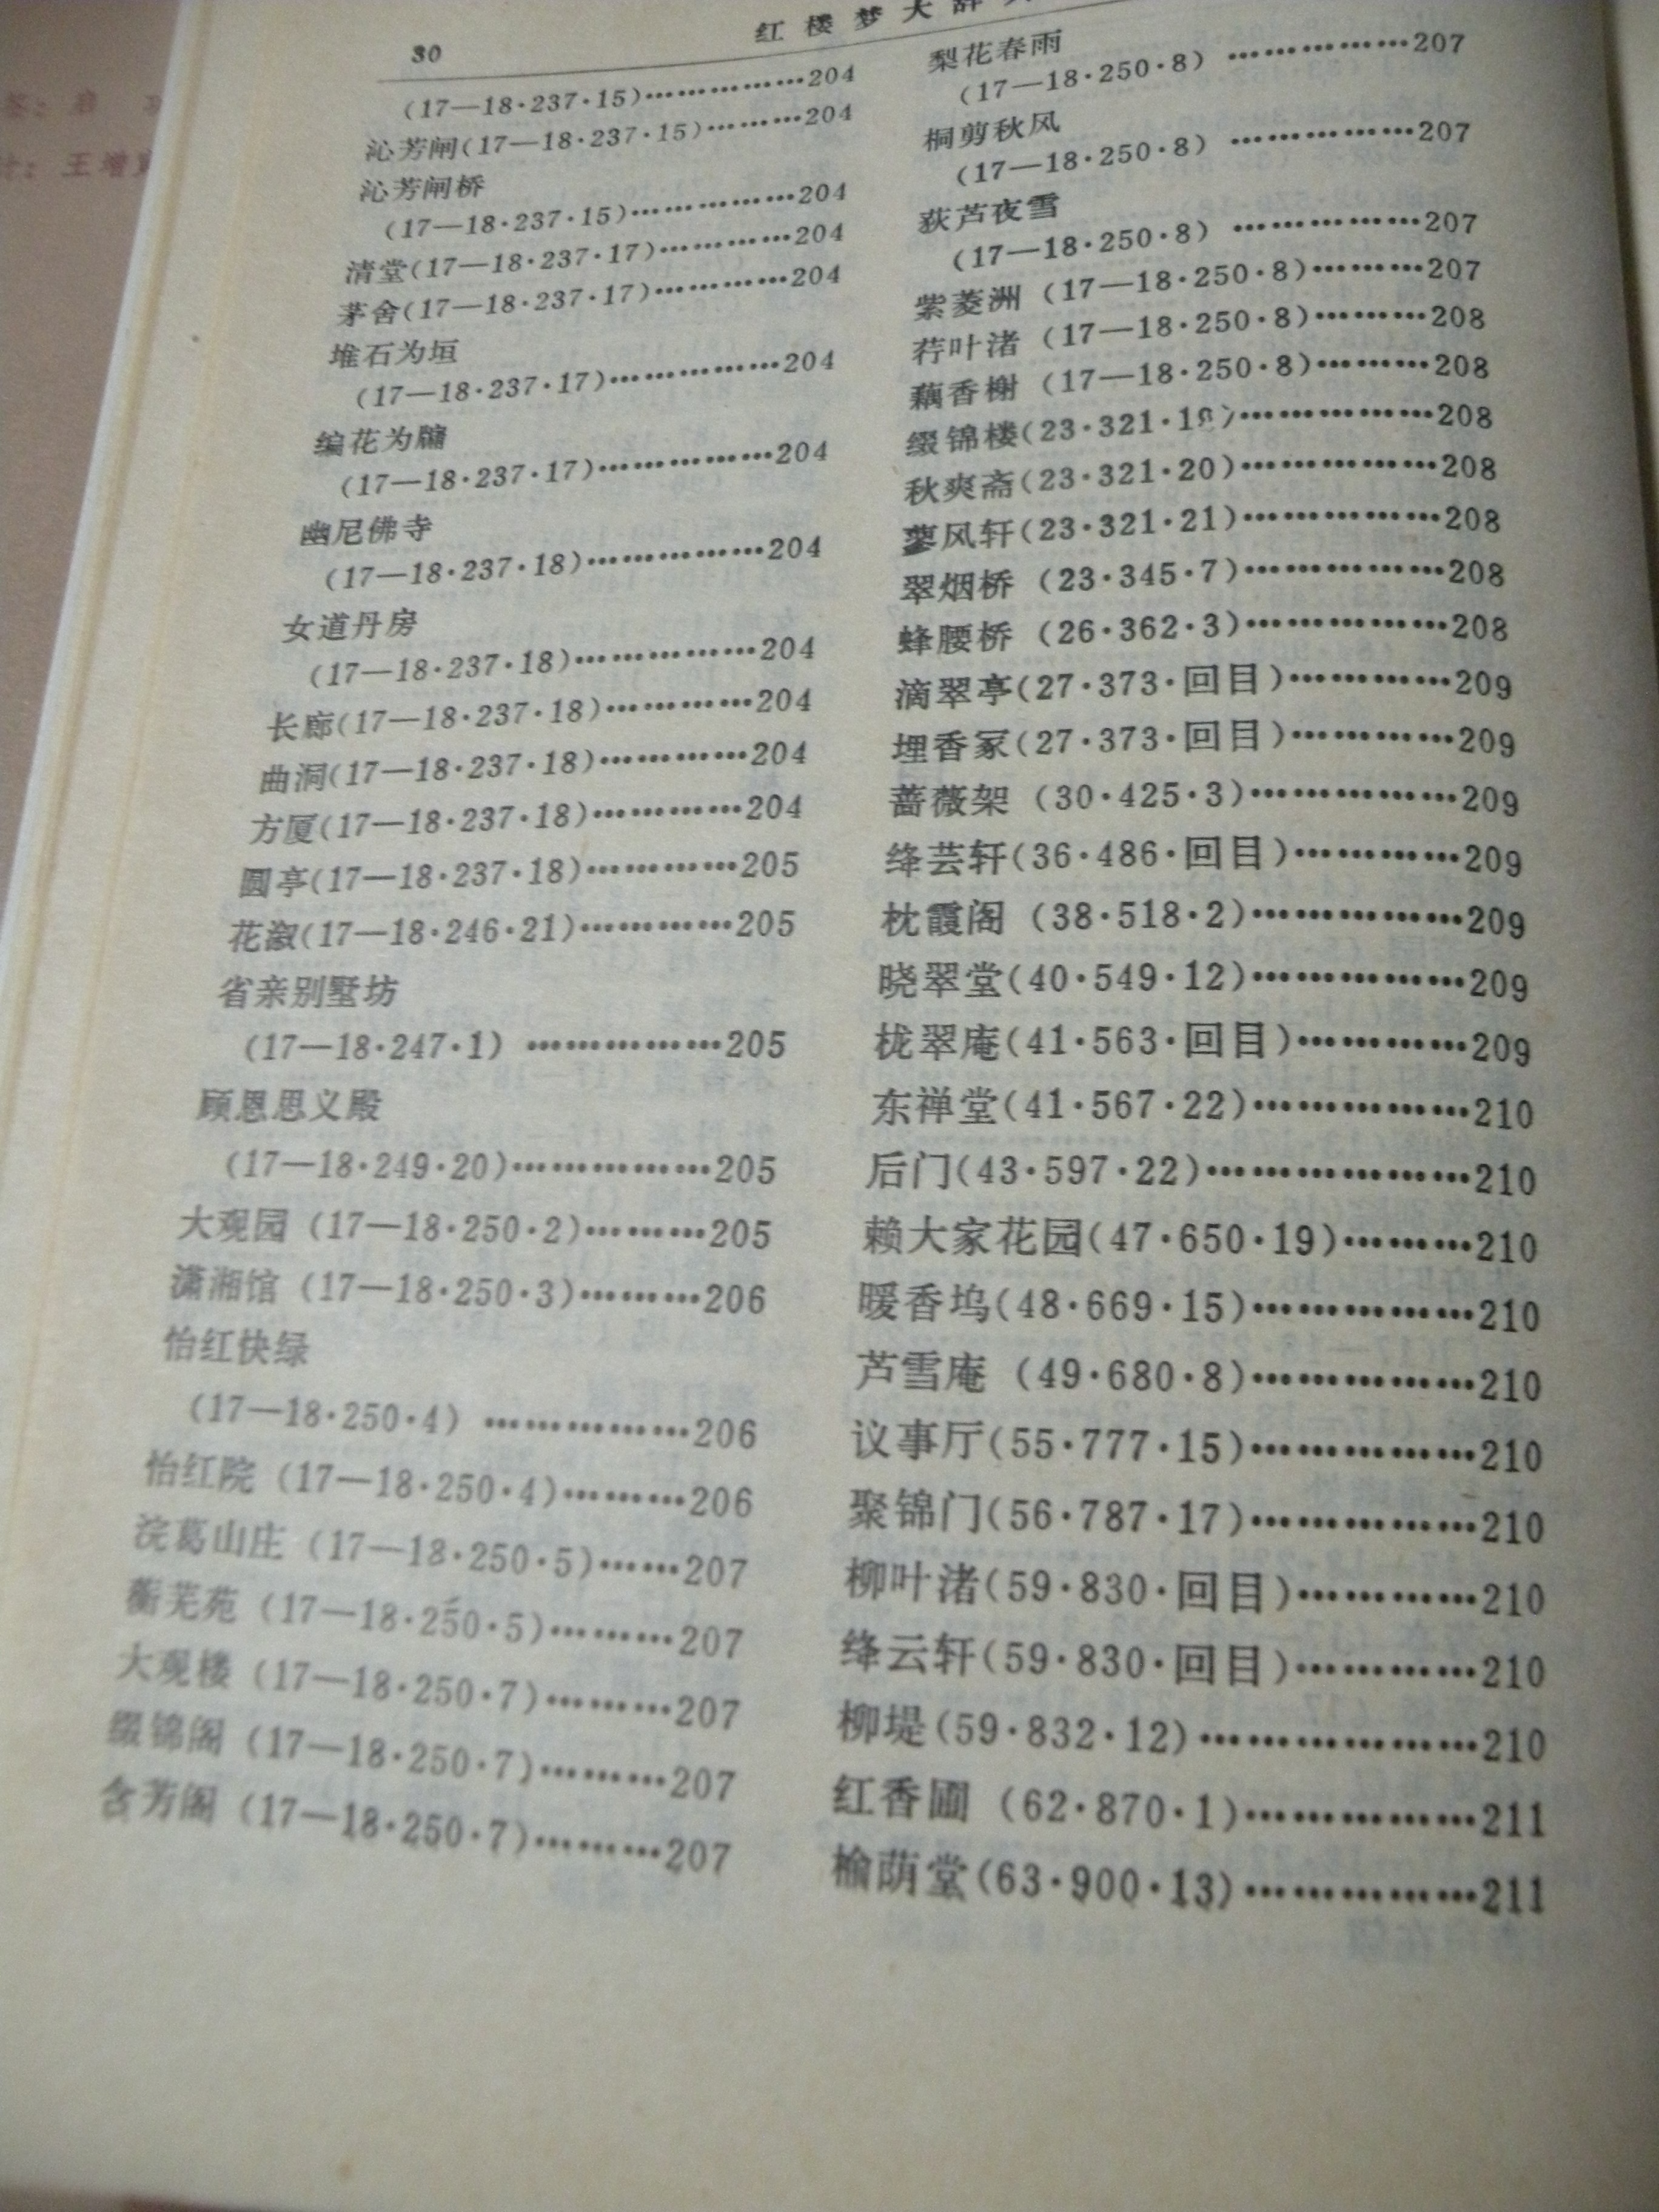 30
红楼梦大辞
(17—18·237·15)………………204
沁芳闸(17—18·237·15)………204
沁芳闸桥
(17—18·237·15)………………204
清堂(17—18·237·17)…………204
茅舍(17—18·237·17)…………204
堆石为垣
(17—18·237·17)………………204
编花为牖
(17—18·237·17)………………204
幽尼佛寺
(17—18·237·18)………………204
女道丹房
(17—18·237·18)………………204
长廊(17—18·237·18)…………204
曲洞(17—18·237·18)…………204
方厦(17—18·237·18)…………204
圆亭(17—18·237·18)…………205
花溆(17—18·246·21)…………205
省亲别墅坊
(17—18·247·1) ………………205
顾恩思义殿
(17—18·249·20)………………205
大观园 (17—18·250·2)………205
潇湘馆 (17—18·250·3)………206
怡红快绿
(17—18·250·4) ………………206
怡红院 (17—18·250·4)………206
浣葛山庄 (17—18·250·5)……207
蘅芜苑 (17—18·250·5)………207
大观楼 (17—18·250·7)………207
缀锦阁 (17—18·250·7)………207
含芳阁 (17—18·250·7)………207
梨花春雨
(17—18·250·8) ………………207
桐剪秋风
(17—18·250·8) ………………207
荻芦夜雪
(17—18·250·8) ………………207
紫菱洲 (17—18·250·8)………207
荇叶渚 (17—18·250·8)………208
藕香榭 (17—18·250·8)………208
缀锦楼(23·321·19)……………208
秋爽斋(23·321·20)……………208
蓼风轩(23·321·21)……………208
翠烟桥 (23·345·7)……………208
蜂腰桥 (26·362·3)……………208
滴翠亭(27·373·回目)…………209
埋香冢(27·373·回目)…………209
蔷薇架 (30·425·3)……………209
绛芸轩(36·486·回目)…………209
枕霞阁 (38·518·2)……………209
晓翠堂(40·549·12)……………209
栊翠庵(41·563·回目)…………209
东禅堂(41·567·22)……………210
后门(43·597·22)………………210
赖大家花园(47·650·19)………210
暖香坞(48·669·15)……………210
芦雪庵 (49·680·8)……………210
议事厅(55·777·15)……………210
聚锦门(56·787·17)……………210
柳叶渚(59·830·回目)…………210
绛云轩(59·830·回目)…………210
柳堤(59·832·12)………………210
红香圃 (62·870·1)……………211
榆荫堂(63·900·13)……………211